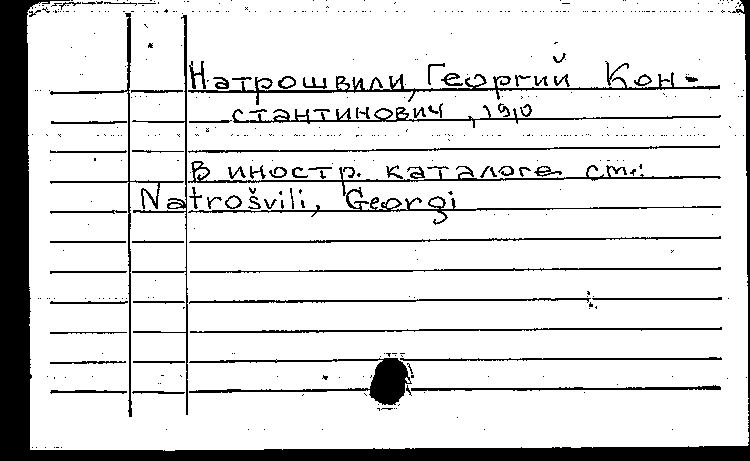 Натрошвили, Георгий Кон-
стантинович, 1910
В иностр. каталоге см.:
Natrošvili, Georgi